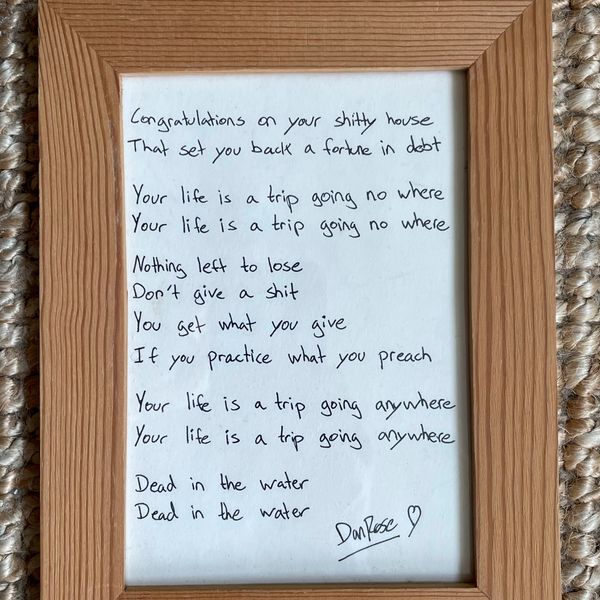 Congratulations on your shitty house
That set you back a fortune in debt
Your life is a trip going no where
Your life is a trip going no where
Nothing left to lose
Don't give a shit
You get what you give
If you practice what you preach
Your life is a trip going anywhere
Your life is a trip going anywhere
Dead in the water
Dead in the water
Dan Rose ♡